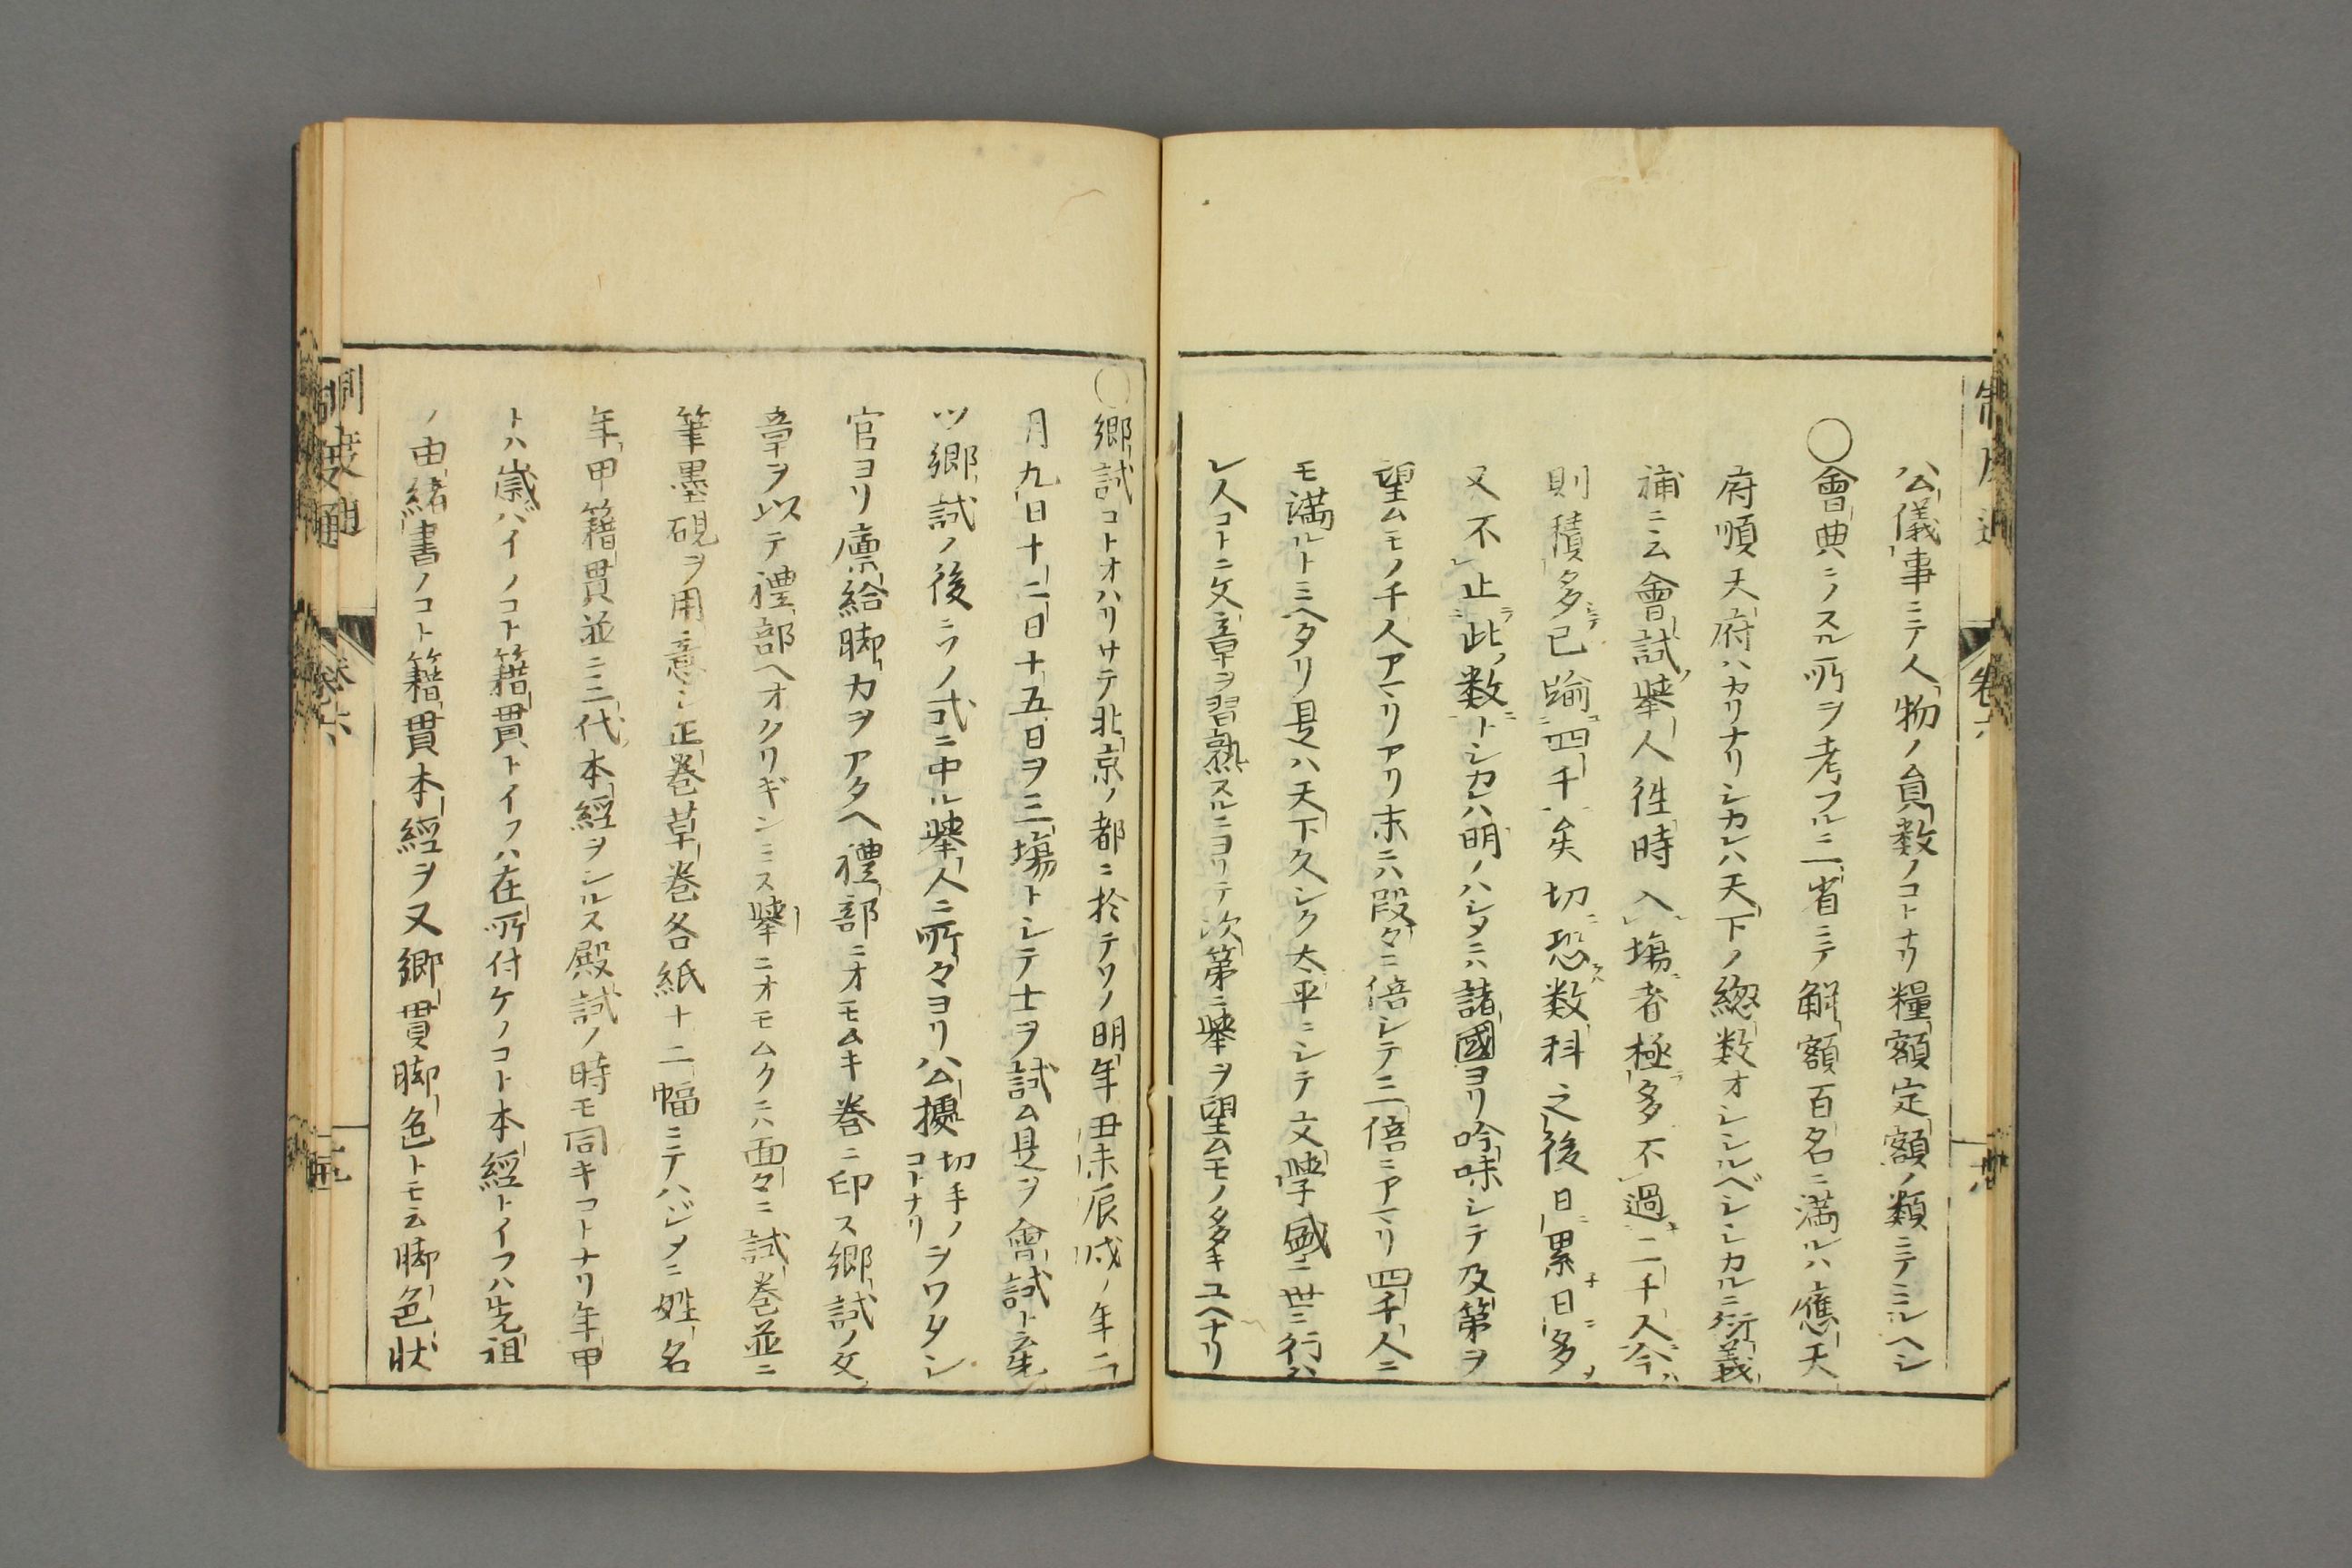 公儀事ニテ人物ノ員数ノコトナリ糧額定額ノ類ニテミルヘシ
〇會典ニノスル所ヲ考フルニ二省ニテ解額百名ニ満ルハ應天
府順天府ハカリナリシカレハ天下ノ緫数オシシルベシシカルニ衍義
補ニ云會試ノ擧人徃時入塲ニ者極多不過二千人今ハ
則積多シテ已踰四千矣切ニ恐数科之後日ニ累子日ニ多ク
又不止ラ此ノ数ニトシカレハ明ノハシメニハ諸國ヨリ吟味シテ及第ヲ
望ムモノ千人アマリアリ末ニハ段々ニ倍シテ三倍ニアマリ四千人ニ
モ満ルトミヘタリ是ハ天下久シク太平ニシテ文學盛ニ世ニ行ハ
レ人コトニ文章ヲ習熟スルニヨリテ次第ニ擧ヲ望ムモノ多キユヘナリ
〇郷試コトオハリサテ北京ノ都ニ於テソノ明年丑未辰戌ノ年二
月九日十二日十五日ヲ三塲トシテ士ヲ試ム是ヲ會試ト云先
ツ郷試ノ後ニソノ式ニ中ル擧人ニ所々ヨリ公據切手ノコトナリヲワタシ
官ヨリ廩給脚力ヲアタヘ禮部ニオモムキ巻ニ印ス郷試ノ文
章ヲ以テ禮部ヘオクリギンミス擧ニオモムクニハ面々ニ試巻並ニ
筆墨硯ヲ用意シ正巻草巻各紙十二幅ニテハジメニ姓名
年甲籍貫並ニ三代本經ヲシルス殿試ノ時モ同キコトナリ年甲
トハ歳バイノコト籍貫トイフハ在所付ケノコト本經トイフハ先祖
ノ由緒書ノコト籍貫本經ヲ又郷貫脚色トモ云脚色状
制度通
巻六